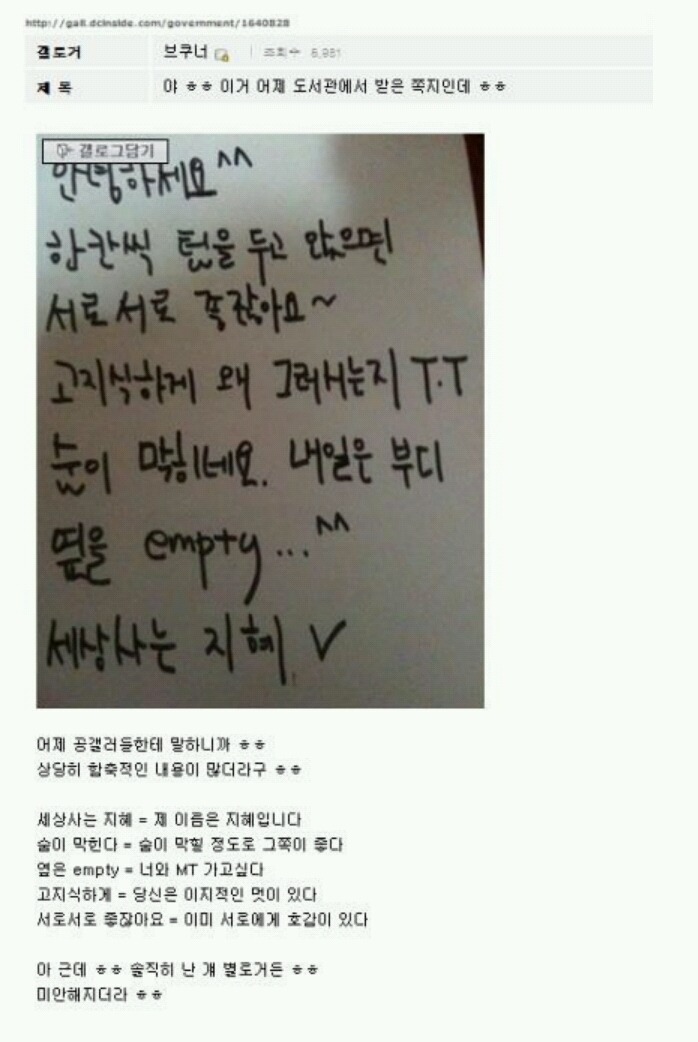 http://gall.dcinside.com/government/1640828
갤로거 브쿠너 조회수 6,981
제 목 야 ㅎㅎ 이거 어제 도서관에서 받은 쪽지인데 ㅎㅎ
갤로그담기
안녕하세요^^
한칸씩 텀을 두고 앉으면
서로서로 좋잖아요~
고지식하게 왜 그러시는지 T.T
숨이 막히네요. 내일은 부디
옆을 empty...^^
세상사는 지혜 V
어제 공갤러들한테 말하니까 ㅎㅎ
상당히 함축적인 내용이 많더라구 ㅎㅎ
세상사는 지혜 = 제 이름은 지혜입니다
숨이 막힌다 = 숨이 막힐 정도로 그쪽이 좋다
옆은 empty = 너와 MT 가고싶다
고지식하게 = 당신은 이지적인 멋이 있다
서로서로 좋잖아요 = 이미 서로에게 호감이 있다
아 근데 ㅎㅎ 솔직히 난 걔 별로거든 ㅎㅎ
미안해지더라 ㅎㅎ